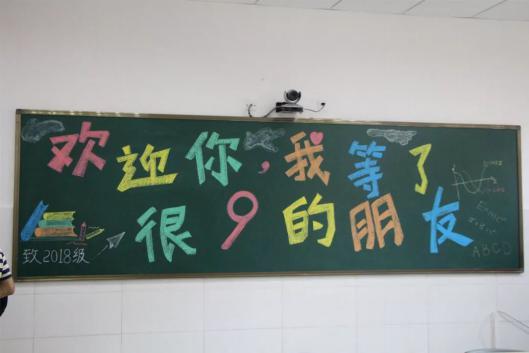 欢迎你,我等了
很9的朋友
致2018级
ABCD